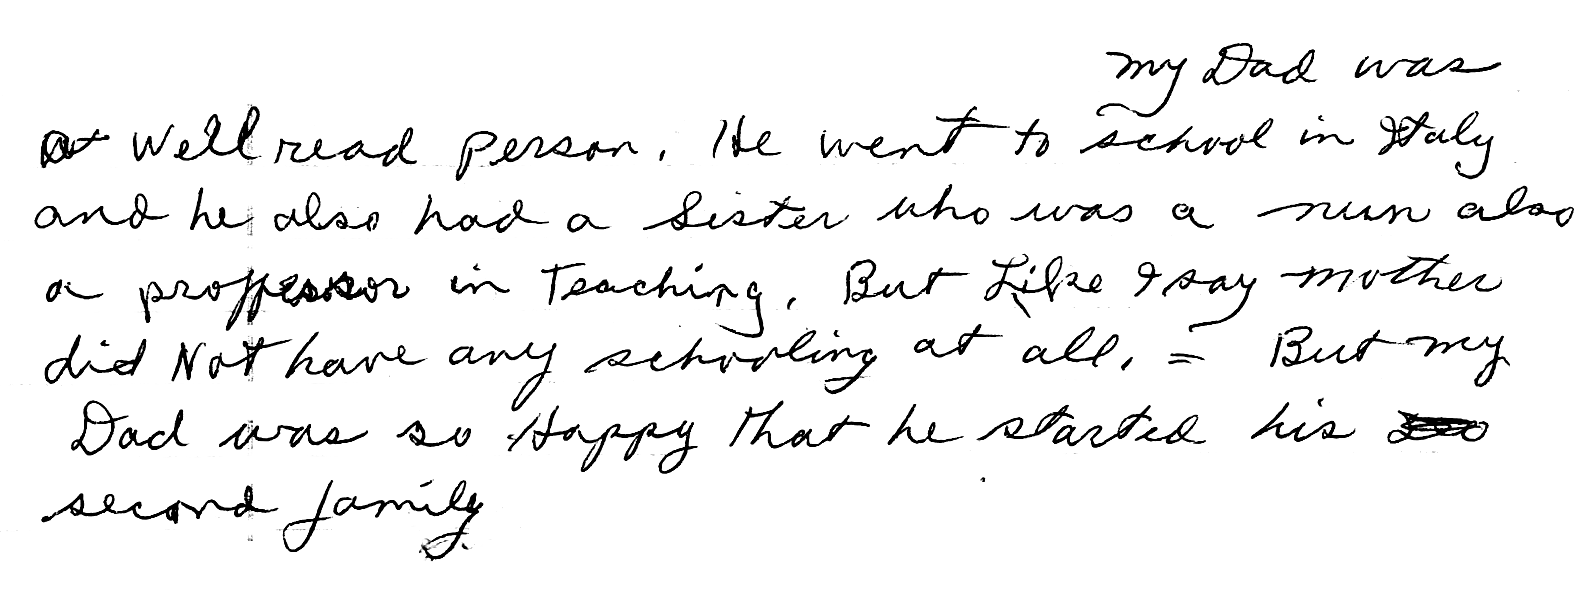 my Dad was
a Well read person. He went to school in Italy
and he also had a Sister who was a nun also
a proffessor in Teaching. But Like I say mother
did Not have any schooling at all. = But my
Dad was so Happy that he started his
second family